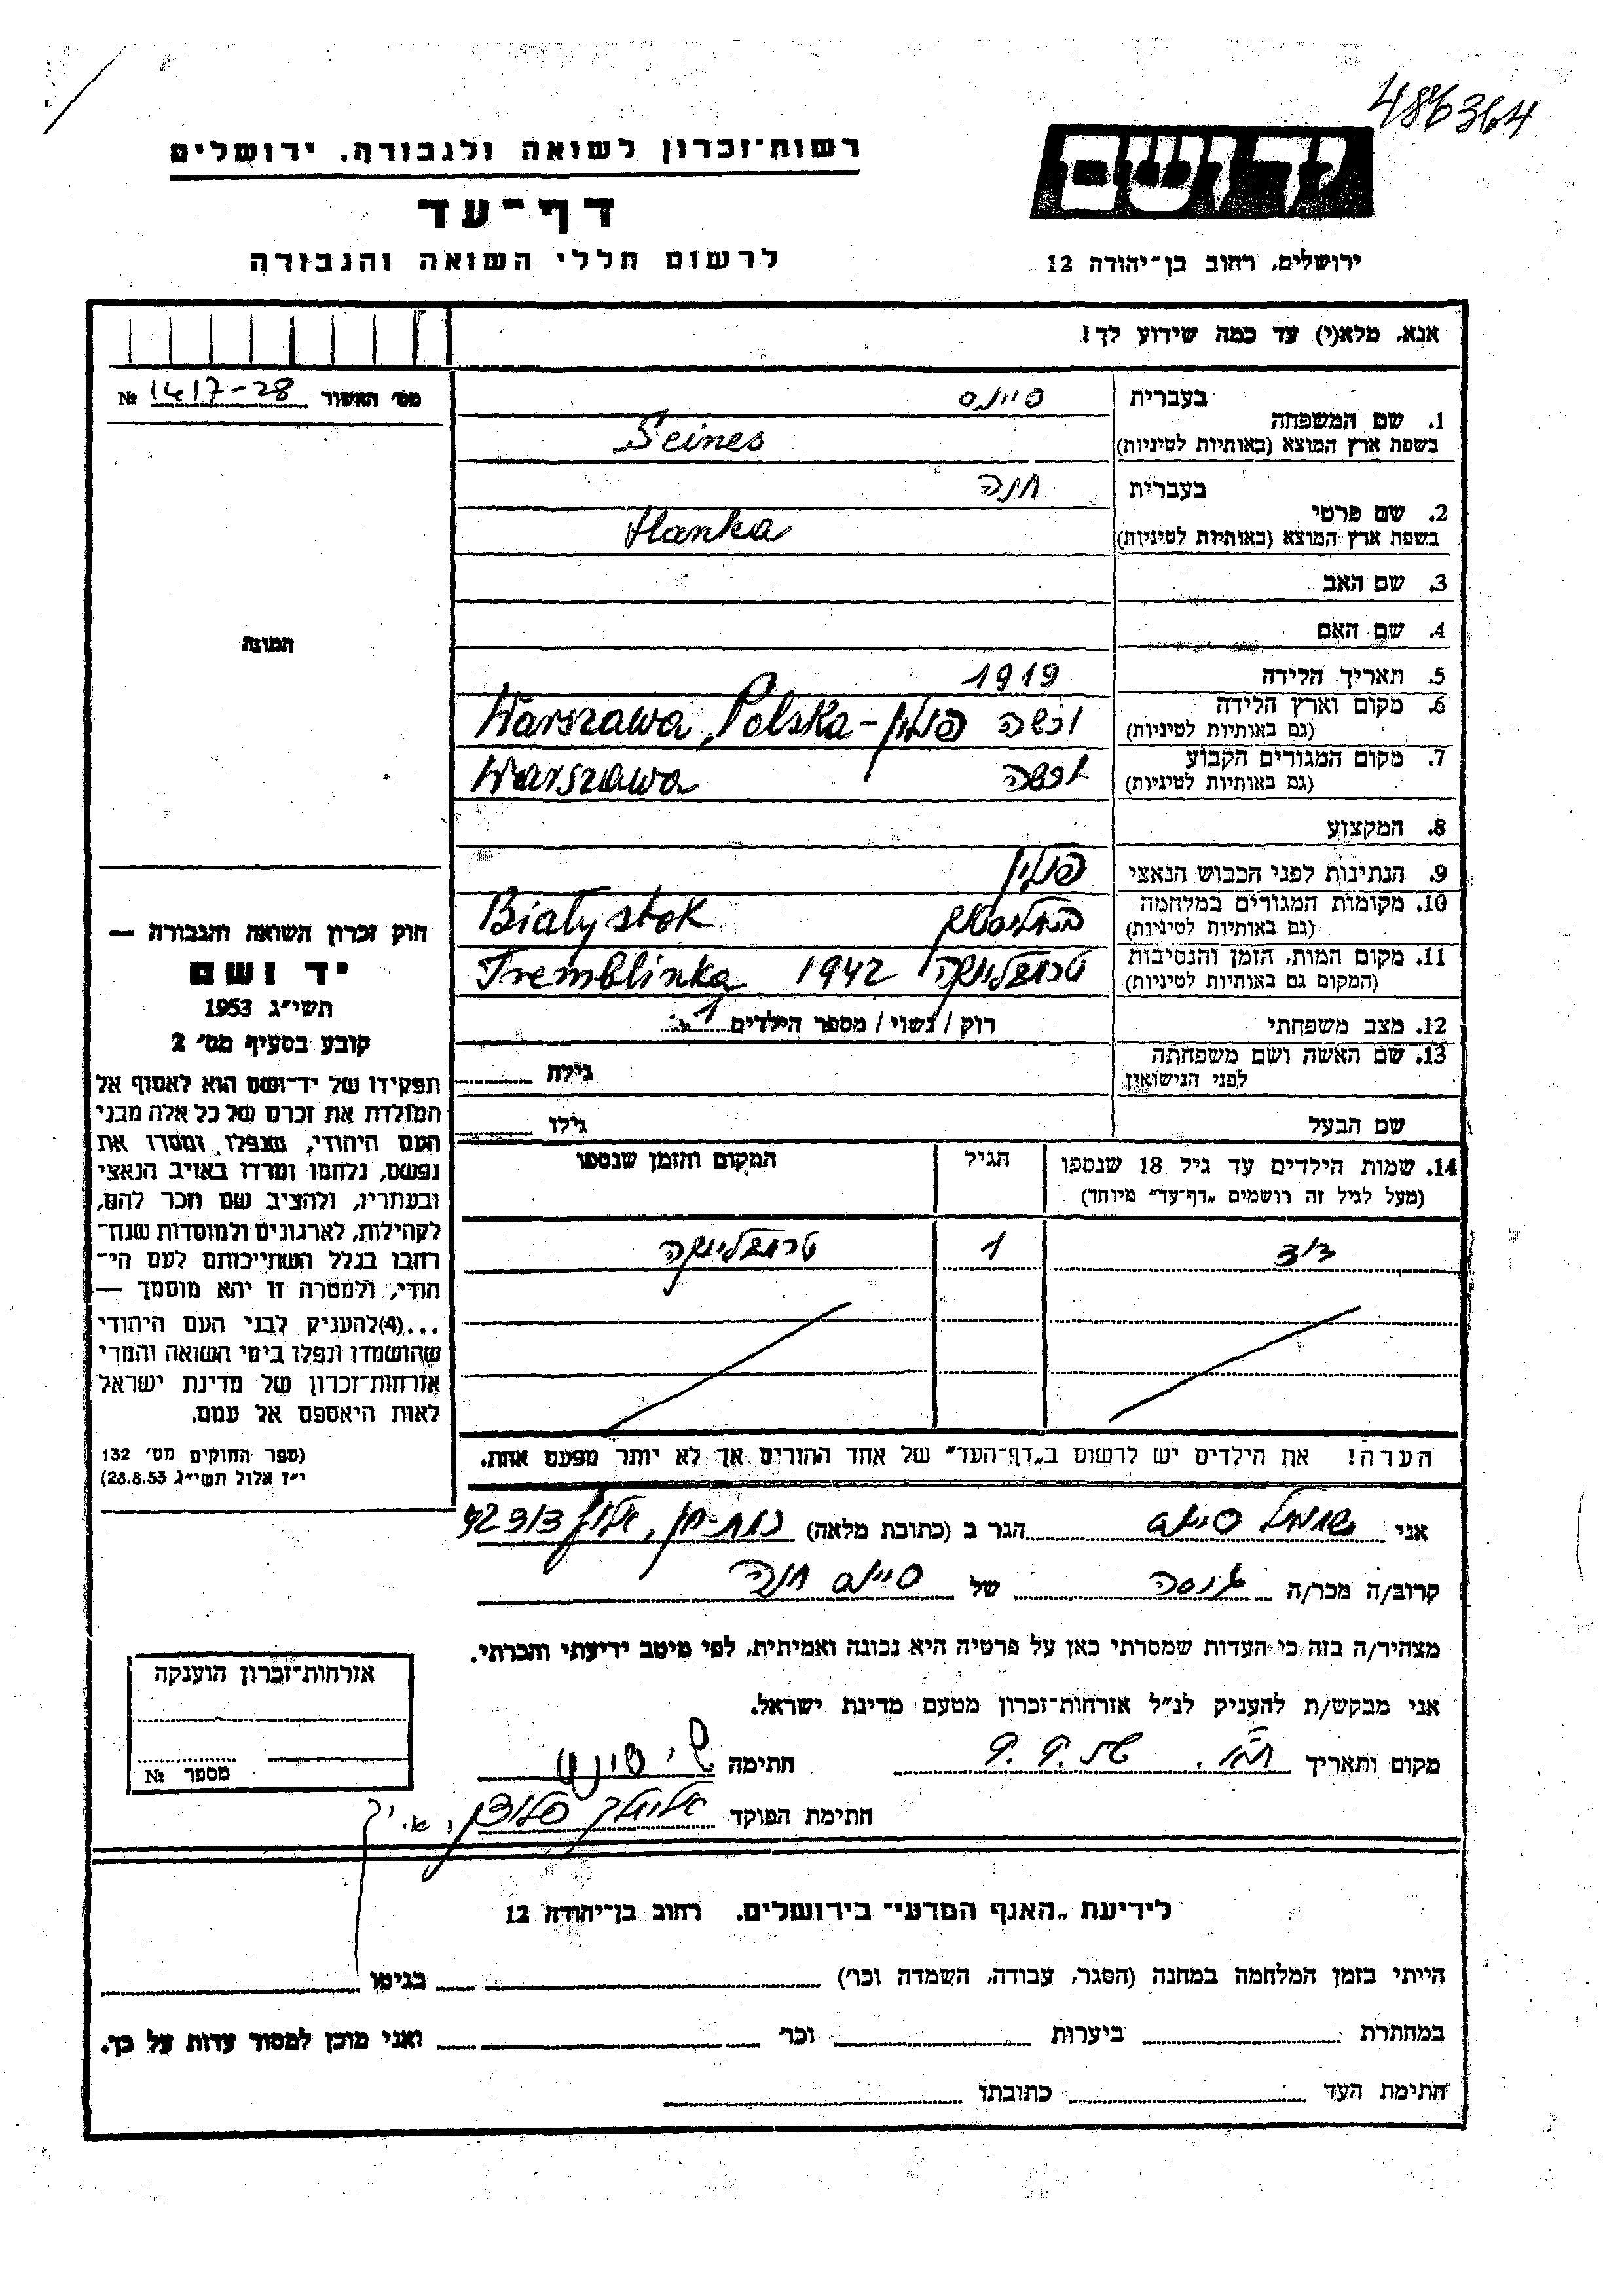 486364
רשות־זכרון לשואה ולגבורה, ירושלים
יד ושם
דף־עד
לרשום חללי השואה והגבורה
ירושלים, רחוב בן־יהודה 12
אנא, מלא(י) עד כמה שידוע לך!
מס׳ האשור 1417-28 №
בעברית סיינס
1. שם המשפחה
בשפת ארץ המוצא (באותיות לטיניות) Seines
בעברית חנה
2. שם פרטי
בשפת ארץ המוצא (באותיות לטיניות) Hanka
3. שם האב
4. שם האם
התמונה
5. תאריך הלידה 1919
6. מקום וארץ הלידה
(גם באותיות לטיניות) ורשה פולין - Warszawa, Polska
7. מקום המגורים הקבוע
(גם באותיות לטיניות) ורשה Warszawa
8. המקצוע
9. הנתינות לפני הכבוש הנאצי פולין
10. מקומות המגורים במלחמה
(גם באותיות לטיניות) Białystok
11. מקום המות, הזמן והנסיבות
(המקום גם באותיות לטיניות) טרמבלינקה 1942 Tremblinka
12. מצב משפחתי רוק / נשוי / מספר הילדים 1
13. שם האשה ושם משפחתה
לפני הנישואין גילה
שם הבעל גילו
14. שמות הילדים עד גיל 18 שנספו
(מעל לגיל זה רושמים „דף־עד” מיוחד) הגיל המקום והזמן שנספו
1 טרמבלינקה
הערה! את הילדים יש לרשום ב„דף־העד” של אחד ההורים אך לא יותר מפעם אחת.
חוק זכרון השואה והגבורה —
יד ושם
תשי״ג 1953
קובע בסעיף מס׳ 2
תפקידו של יד־ושם הוא לאסוף אל
המולדת את זכרם של כל אלה מבני
העם היהודי, שנפלו, ומסרו את
נפשם, נלחמו ומרדו באויב הנאצי
ובעוזריו, ולהציב שם וזכר להם,
לקהילות, לארגונים ולמוסדות שנח־
רבו בגלל השתייכותם לעם הי־
הודי, ולמטרה זו יהא מוסמך —
...(4)להעניק לבני העם היהודי
שהושמדו ונפלו בימי השואה והמרי
אזרחות־זכרון של מדינת ישראל
לאות היאספם אל עמם.
(ספר החוקים מס׳ 132
י״ז אלול תשי״ג 28.8.53)
אני שמואל סיינס הגר ב (כתובת מלאה)
קרוב/ה מכר/ה גיסה של סיינס חנה
מצהיר/ה בזה כי העדות שמסרתי כאן על פרטיה היא נכונה ואמיתית, לפי מיטב ידיעתי והכרתי.
אני מבקש/ת להעניק לנ״ל אזרחות־זכרון מטעם מדינת ישראל.
מקום ותאריך חתימה
חתימת הפוקד
אזרחות־זכרון הוענקה
מספר №
לידיעת „האגף המדעי” בירושלים, רחוב בן־יהודה 12
הייתי בזמן המלחמה במחנה (הסגר, עבודה, השמדה וכו׳) בגיטו
במחתרת ביערות וכו׳ ואני מוכן למסור עדות על כך.
חתימת העד כתובתו